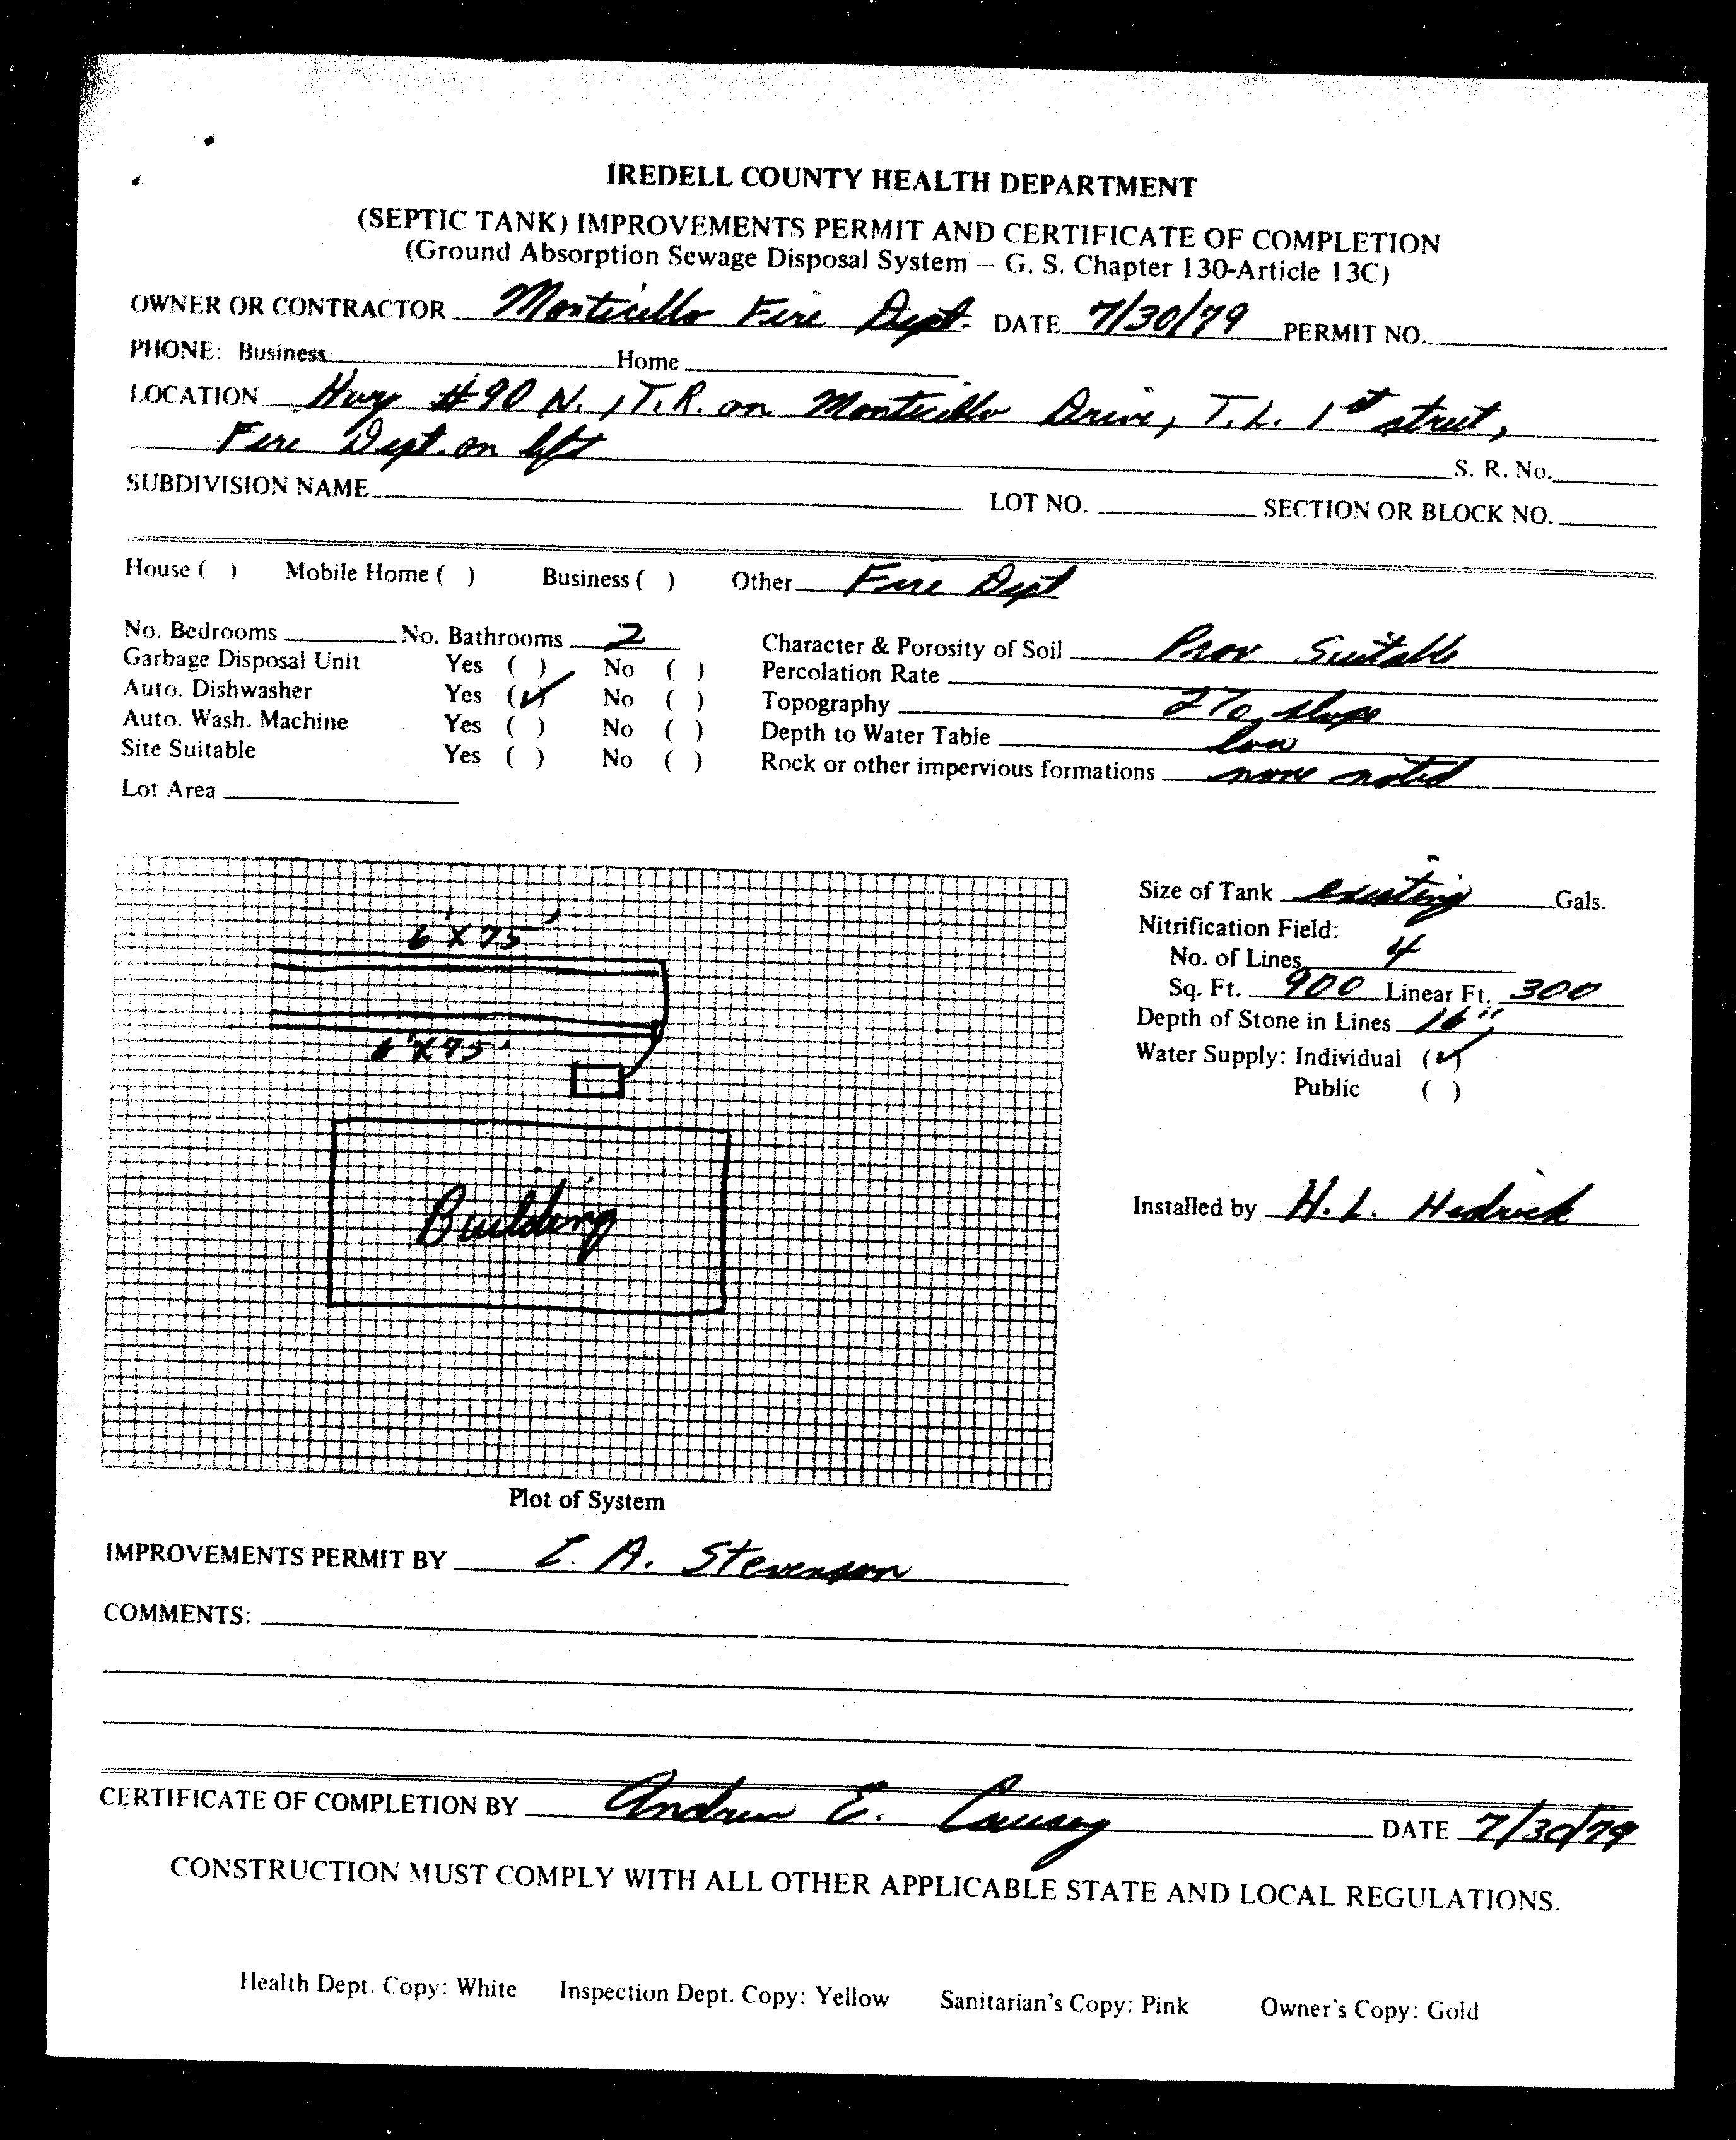 IREDELL COUNTY HEALTH DEPARTMENT
(SEPTIC TANK) IMPROVEMENTS PERMIT AND CERTIFICATE OF COMPLETION
(Ground Absorption Sewage Disposal System – G. S. Chapter 130-Article 13C)
OWNER OR CONTRACTOR Monticello Fire Dept. DATE 7/30/79 PERMIT NO.
PHONE: Business Home
LOCATION Hwy #90 N., T.R. on Monticello Drive, T.L. 1st street,
Fire Dept. on left
S. R. No.
SUBDIVISION NAME LOT NO. SECTION OR BLOCK NO.
House ( ) Mobile Home ( ) Business ( ) Other Fire Dept
No. Bedrooms No. Bathrooms 2 Character & Porosity of Soil Prov. Suitable
Garbage Disposal Unit Yes ( ) No ( ) Percolation Rate
Auto. Dishwasher Yes (✓) No ( ) Topography 2% slope
Auto. Wash. Machine Yes ( ) No ( ) Depth to Water Table low
Site Suitable Yes ( ) No ( ) Rock or other impervious formations none noted
Lot Area
6' X 75'
6' X 75'
Building
Plot of System
Size of Tank existing Gals.
Nitrification Field:
No. of Lines 4
Sq. Ft. 900 Linear Ft. 300
Depth of Stone in Lines 16"
Water Supply: Individual (✓)
Public ( )
Installed by H. L. Hedrick
IMPROVEMENTS PERMIT BY L. A. Stevenson
COMMENTS:
CERTIFICATE OF COMPLETION BY Andrew E. Causey DATE 7/30/79
CONSTRUCTION MUST COMPLY WITH ALL OTHER APPLICABLE STATE AND LOCAL REGULATIONS.
Health Dept. Copy: White Inspection Dept. Copy: Yellow Sanitarian's Copy: Pink Owner's Copy: Gold